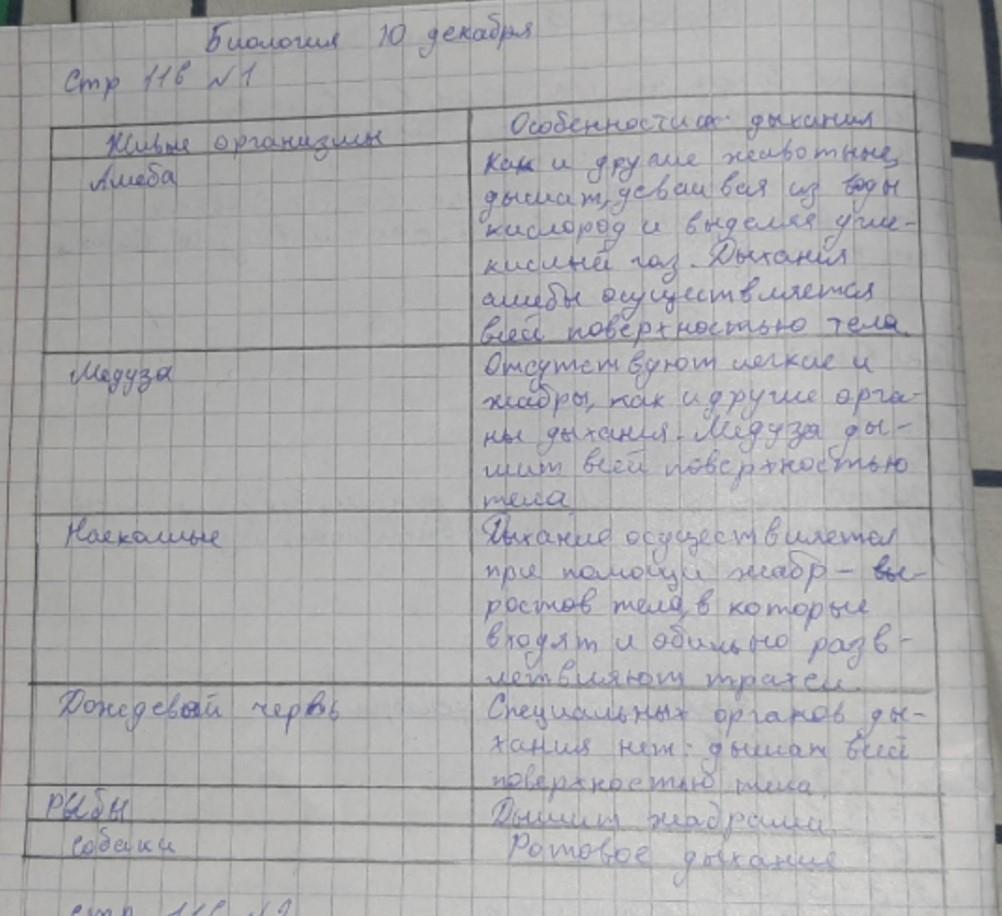 Биология 10 декабря
Стр 116 №1
Живые организмы
Особенности дыхания
Амеба
Как и другие животные,
дышат, усваивая из воды
кислород и выделяя угле-
кислый газ. Дыхания
амебы осуществляется
всей поверхностью тела.
Медуза
Отсутствуют легкие и
жабры, как и другие орга-
ны дыхания. Медуза ды-
шит всей поверхностью
тела
Насекомые
Дыхание осуществляется
при помощи жабр - вы-
ростов тела, в которые
входят и обильно разв-
летвляют трахеи.
Дождевой червь
Специальных органов ды-
хания нет. дышат всей
поверхностью тела.
рыбы
Дышит жабрами
собаки
Ротовое дыхание
стр 116 №2